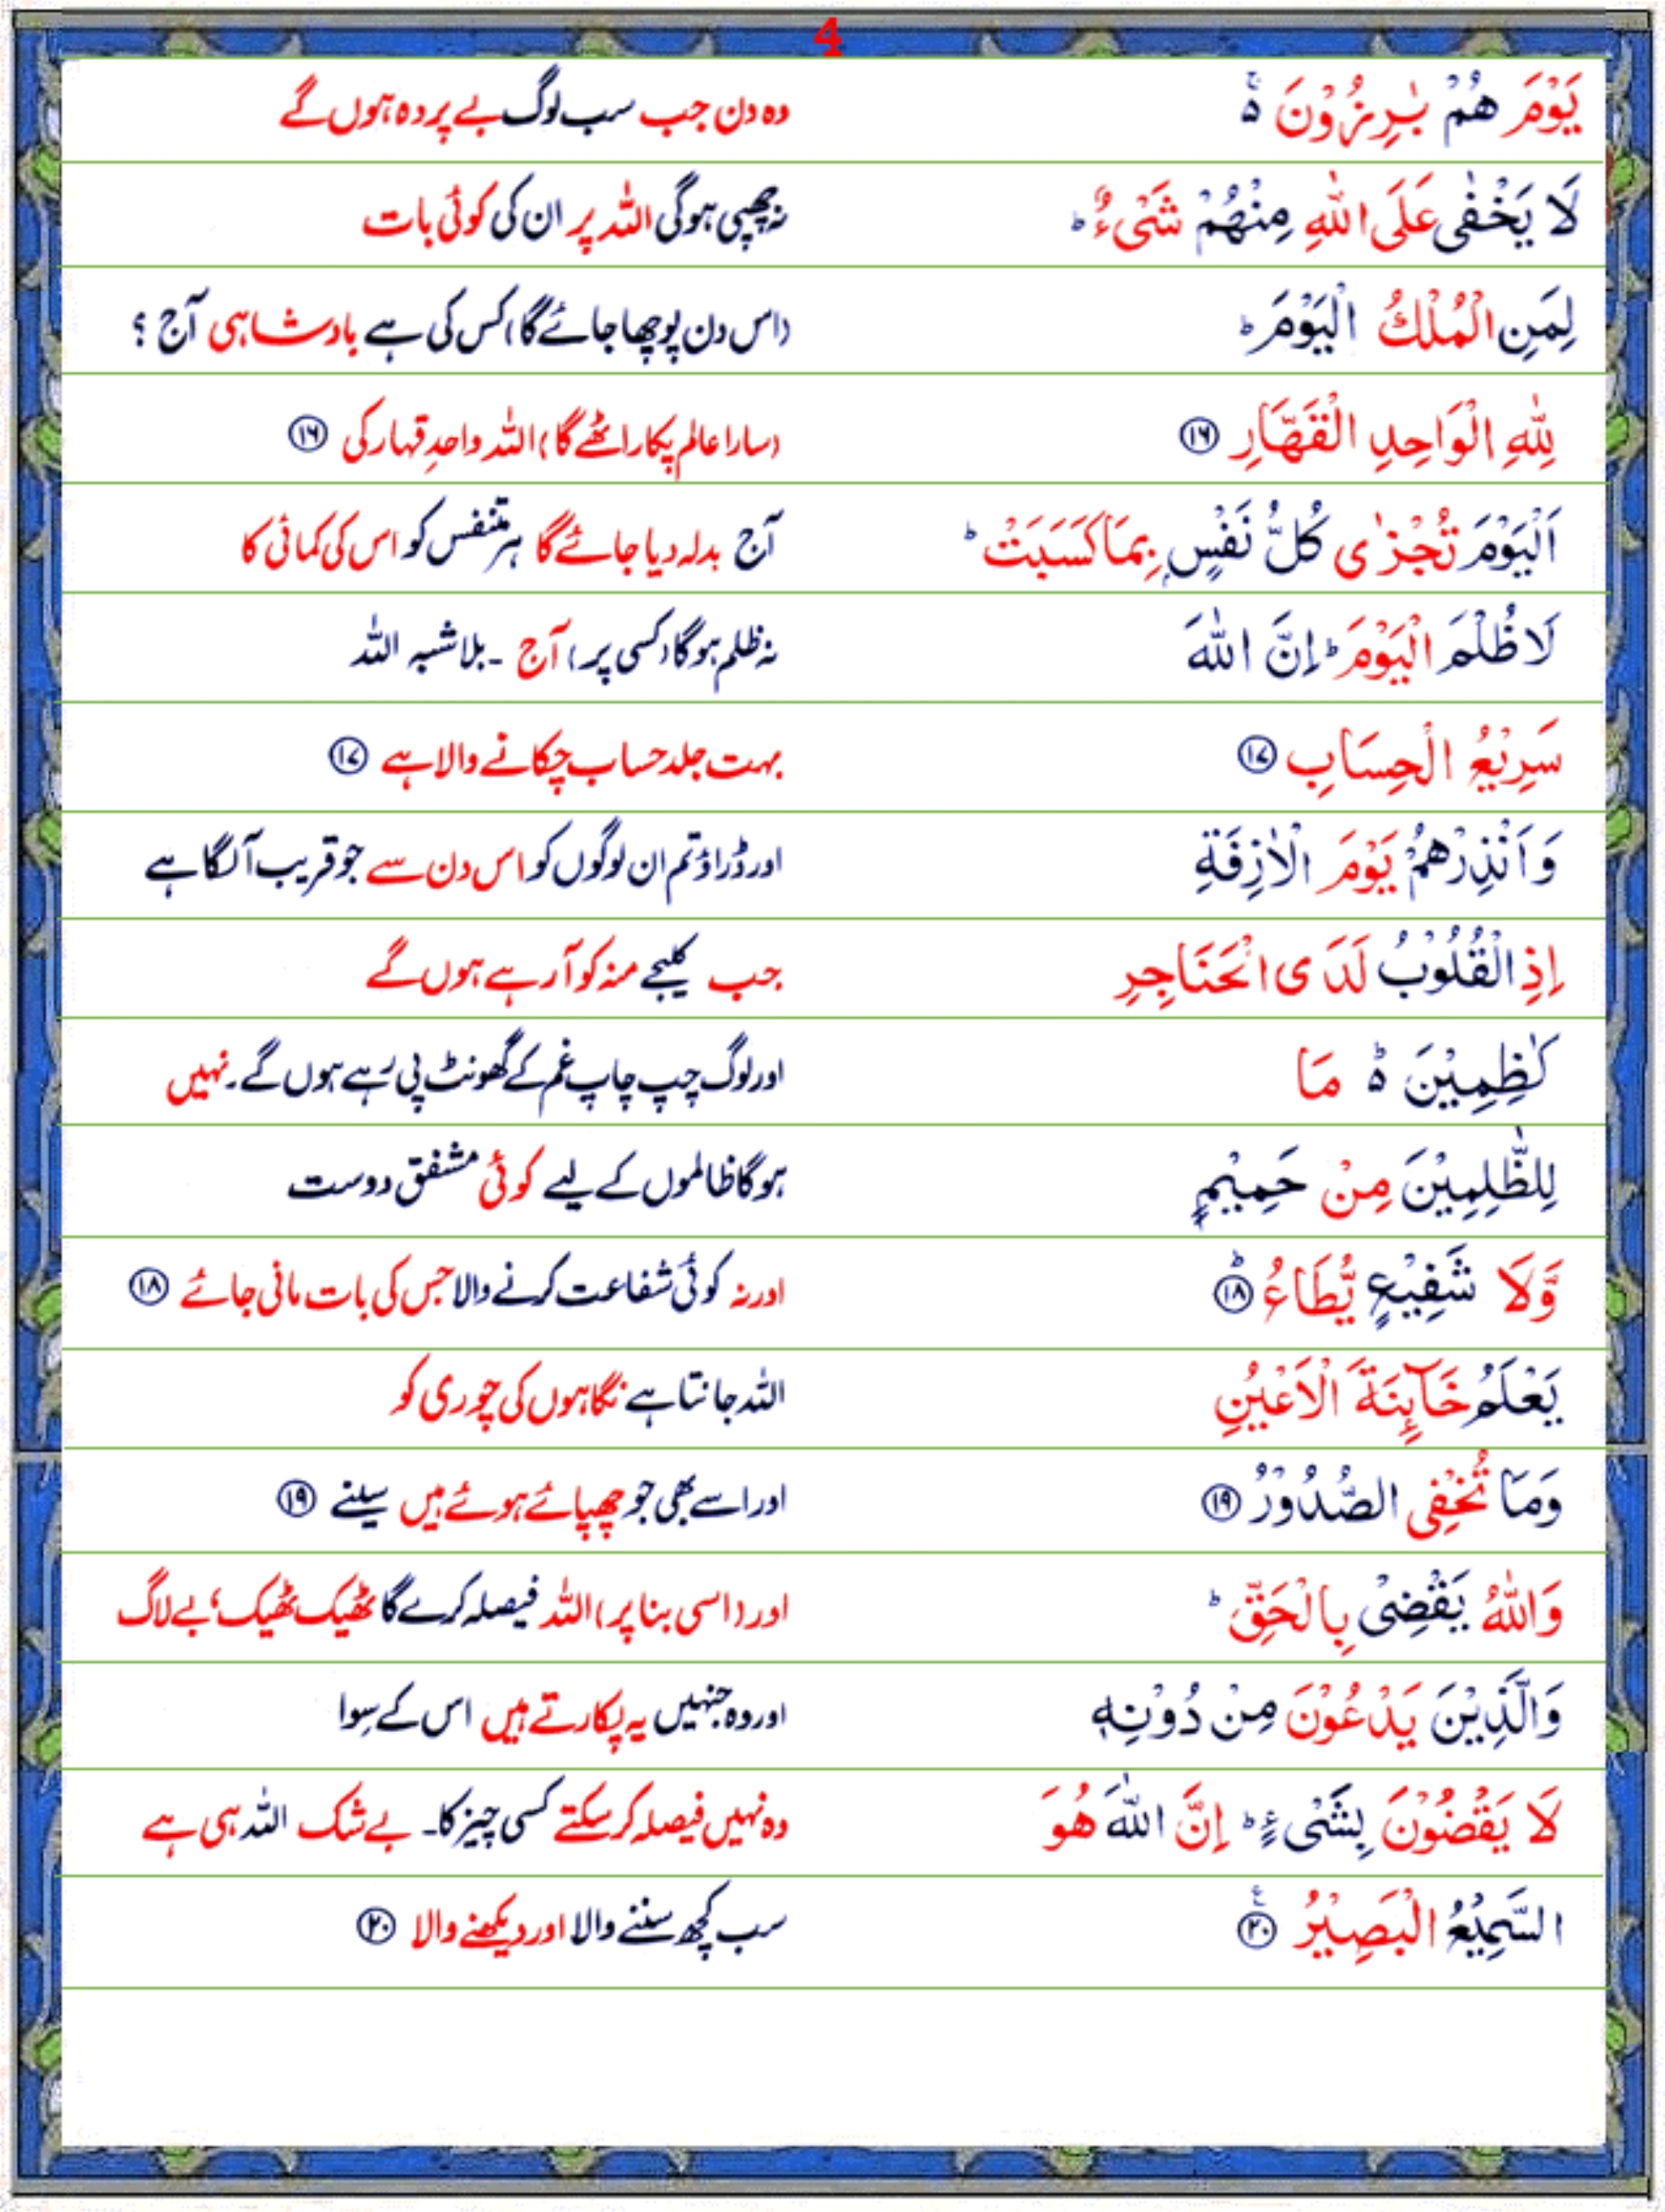 4
يَوْمَ هُمْ بٰرِزُوْنَ ۵ۚ وہ دن جب سب لوگ بے پردہ ہوں گے
لَا يَخْفٰى عَلَى اللّٰهِ مِنْهُمْ شَىْءٌ ؕ نہ چھپی ہوگی اللہ پر ان کی کوئی بات
لِمَنِ الْمُلْكُ الْيَوْمَ ؕ (اس دن پوچھا جائے گا) کس کی ہے بادشاہی آج ؟
لِلّٰهِ الْوَاحِدِ الْقَهَّارِ ۱۶ (سارا عالم پکار اٹھے گا) اللہ واحدِ قہار کی ۱۶
اَلْيَوْمَ تُجْزٰى كُلُّ نَفْسٍۭ بِمَا كَسَبَتْ ؕ آج بدلہ دیا جائے گا ہر متنفس کو اس کی کمائی کا
لَا ظُلْمَ الْيَوْمَ ؕ اِنَّ اللّٰهَ نہ ظلم ہوگا (کسی پر) آج ۔ بلاشبہ اللہ
سَرِيْعُ الْحِسَابِ ۱۷ بہت جلد حساب چکانے والا ہے ۱۷
وَاَنْذِرْهُمْ يَوْمَ الْاٰزِفَةِ اور ڈراؤ تم ان لوگوں کو اس دن سے جو قریب آلگا ہے
اِذِ الْقُلُوْبُ لَدَى الْحَنَاجِرِ جب کلیجے منہ کو آرہے ہوں گے
كٰظِمِيْنَ ۵ؕ مَا اور لوگ چپ چاپ غم کے گھونٹ پی رہے ہوں گے۔ نہیں
لِلظّٰلِمِيْنَ مِنْ حَمِيْمٍ ہوگا ظالموں کے لیے کوئی مشفق دوست
وَّلَا شَفِيْعٍ يُّطَاعُ ۱۸ؕ اور نہ کوئی شفاعت کرنے والا جس کی بات مانی جائے ۱۸
يَعْلَمُ خَآئِنَةَ الْاَعْيُنِ اللہ جانتا ہے نگاہوں کی چوری کو
وَمَا تُخْفِى الصُّدُوْرُ ۱۹ اور اسے بھی جو چھپائے ہوئے ہیں سینے ۱۹
وَاللّٰهُ يَقْضِىْ بِالْحَقِّ ؕ اور (اسی بنا پر) اللہ فیصلہ کرے گا ٹھیک ٹھیک، بے لاگ
وَالَّذِيْنَ يَدْعُوْنَ مِنْ دُوْنِهٖ اور وہ جنہیں یہ پکارتے ہیں اس کے سِوا
لَا يَقْضُوْنَ بِشَىْءٍ ؕ اِنَّ اللّٰهَ هُوَ وہ نہیں فیصلہ کرسکتے کسی چیز کا۔ بے شک اللہ ہی ہے
السَّمِيْعُ الْبَصِيْرُ ۲۰ۧ سب کچھ سننے والا اور دیکھنے والا ۲۰